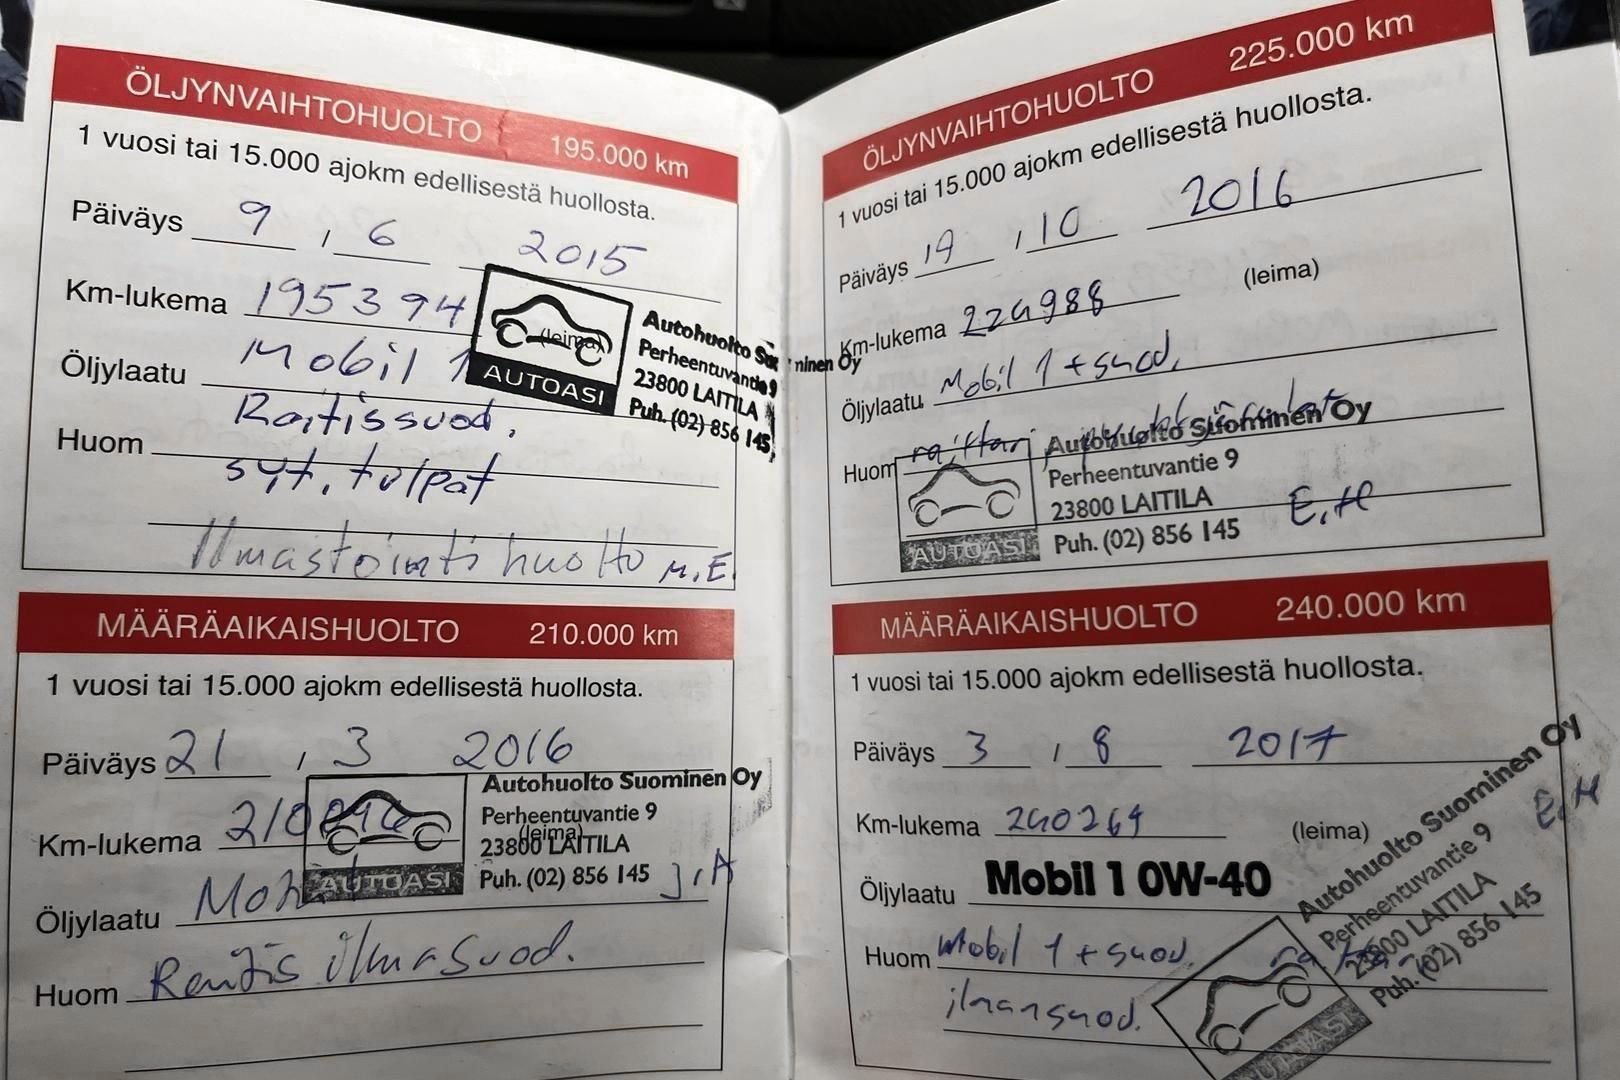 ÖLJYNVAIHTOHUOLTO 195.000 km
1 vuosi tai 15.000 ajokm edellisestä huollosta.
Päiväys 9 , 6 2015
Km-lukema 195394
(leima)
Öljylaatu Mobil 1
AUTOASI
Autohuolto Suominen Oy
Perheentuvantie 9
23800 LAITILA
Puh. (02) 856 145
Raitissuod.
Huom
syt. tulpat
Ilmastointi huolto M.E.
MÄÄRÄAIKAISHUOLTO 210.000 km
1 vuosi tai 15.000 ajokm edellisestä huollosta.
Päiväys 21 , 3 2016
Km-lukema
(leima)
Autohuolto Suominen Oy
Perheentuvantie 9
23800 LAITILA
Puh. (02) 856 145
AUTOASI
J.A
Öljylaatu
Huom Raitis ilmasuod.
ÖLJYNVAIHTOHUOLTO 225.000 km
1 vuosi tai 15.000 ajokm edellisestä huollosta.
Päiväys 19 , 10 2016
Km-lukema 224988 (leima)
Öljylaatu Mobil 1 + suod.
Huom
Autohuolto Suominen Oy
Perheentuvantie 9
23800 LAITILA
Puh. (02) 856 145
AUTOASI
E.H
MÄÄRÄAIKAISHUOLTO 240.000 km
1 vuosi tai 15.000 ajokm edellisestä huollosta.
Päiväys 3 , 8 2017
Km-lukema 240264 (leima)
Öljylaatu Mobil 1 0W-40
Huom Mobil 1 + suod.
ilmansuod.
Autohuolto Suominen Oy
Perheentuvantie 9
23800 LAITILA
Puh. (02) 856 145
AUTOASI
E.H